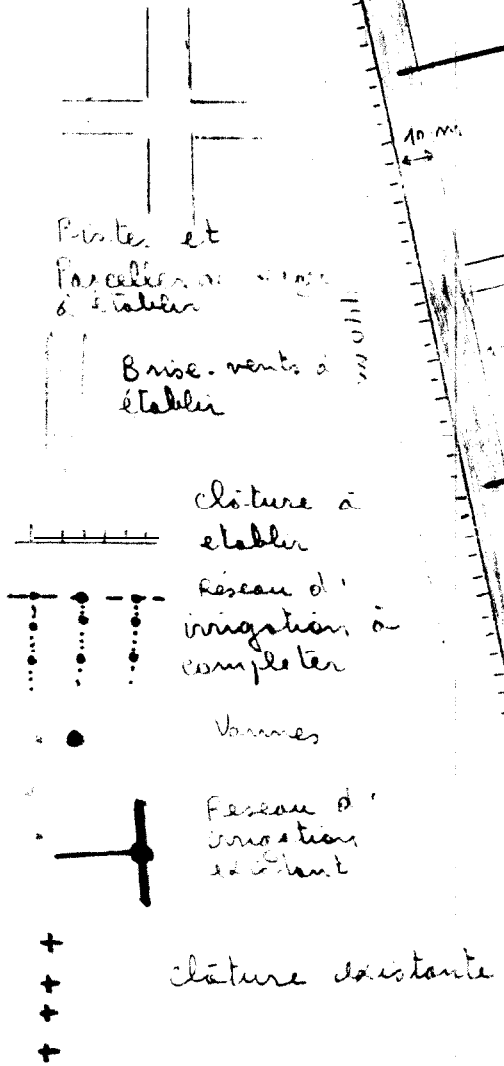 10 m.
Pistes et
Parcelles
à établir
Brise-vents à
établir
clôture à
etablir
Réseau d'
irrigation à
completer
Vannes
Reseau d'
irrigation
existant
clôture existante